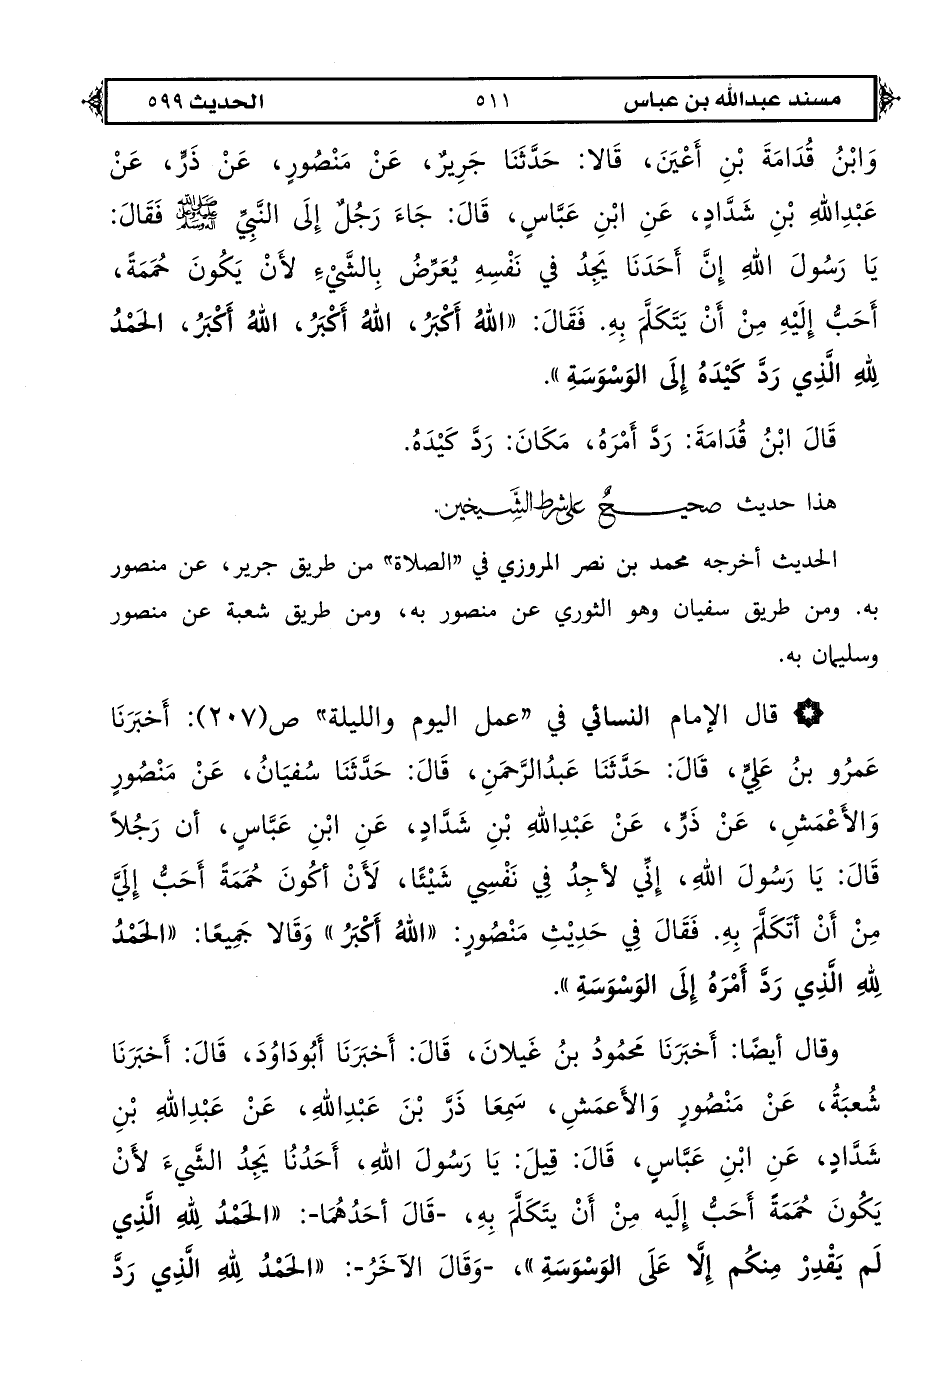 مسند عبدالله بن عباس ٥١١ الحديث ٥٩٩
وَابْنُ قُدَامَةَ بْنِ أَعْيَنَ، قَالا: حَدَّثَنَا جَرِيرٌ، عَنْ مَنْصُورٍ، عَنْ ذَرٍّ، عَنْ
عَبْدِاللهِ بْنِ شَدَّادٍ، عَنِ ابْنِ عَبَّاسٍ، قَالَ: جَاءَ رَجُلٌ إِلَى النَّبِيِّ ﷺ فَقَالَ:
يَا رَسُولَ اللهِ إِنَّ أَحَدَنَا يَجِدُ فِي نَفْسِهِ يُعَرِّضُ بِالشَّيْءِ لأَنْ يَكُونَ حُمَمَةً،
أَحَبُّ إِلَيْهِ مِنْ أَنْ يَتَكَلَّمَ بِهِ. فَقَالَ: «اللهُ أَكْبَرُ، اللهُ أَكْبَرُ، اللهُ أَكْبَرُ، الحَمْدُ
لِلهِ الَّذِي رَدَّ كَيْدَهُ إِلَى الوَسْوَسَةِ».
قَالَ ابْنُ قُدَامَةَ: رَدَّ أَمْرَهُ، مَكَانَ: رَدَّ كَيْدَهُ.
هذا حديث صحيحٌ على شرط الشَّيخين.
الحديث أخرجه محمد بن نصر المروزي في "الصلاة" من طريق جرير، عن منصور
به. ومن طريق سفيان وهو الثوري عن منصور به، ومن طريق شعبة عن منصور
وسليمان به.
قال الإمام النسائي في "عمل اليوم والليلة" ص(٢٠٧): أَخبَرَنَا
عَمرُو بنُ عَلِيٍّ، قَالَ: حَدَّثَنَا عَبدُالرَّحمَنِ، قَالَ: حَدَّثَنَا سُفيَانُ، عَنْ مَنْصُورٍ
وَالأَعْمَشِ، عَنْ ذَرٍّ، عَنْ عَبْدِاللهِ بْنِ شَدَّادٍ، عَنِ ابْنِ عَبَّاسٍ، أن رَجُلاً
قَالَ: يَا رَسُولَ اللهِ، إِنِّي لأجِدُ فِي نَفْسِي شَيْئًا، لَأَنْ أكُونَ حُمَمَةً أحَبُّ إِلَيَّ
مِنْ أَنْ أتَكَلَّمَ بِهِ. فَقَالَ فِي حَدِيْثِ مَنْصُورٍ: «اللهُ أَكْبَرُ» وَقَالا جَمِيعًا: «الحَمْدُ
لِلهِ الَّذِي رَدَّ أَمْرَهُ إِلَى الوَسْوَسَةِ».
وقال أيضًا: أَخبَرَنَا مَحمُودُ بنُ غَيلانَ، قَالَ: أَخبَرَنَا أَبُودَاوُدَ، قَالَ: أَخبَرَنَا
شُعبَةُ، عَنْ مَنْصُورٍ وَالأَعمَشِ، سَمِعَا ذَرَّ بْنَ عَبْدِاللهِ، عَنْ عَبْدِاللهِ بْنِ
شَدَّادٍ، عَنِ ابْنِ عَبَّاسٍ، قَالَ: قِيلَ: يَا رَسُولَ اللهِ، أَحَدُنُا يَجِدُ الشَّيءَ لأَنْ
يَكُونَ حُمَمَةً أَحَبُّ إِلَيه مِنْ أَنْ يَتَكَلَّمَ بِهِ، -قَالَ أحَدُهُمَا-: «الحَمْدُ لِلهِ الَّذِي
لَم يَقْدِرْ مِنكُم إِلَّا عَلَى الوَسْوَسَةِ»، -وَقَالَ الآخَرُ-: «الحَمْدُ لِلهِ الَّذِي رَدَّ